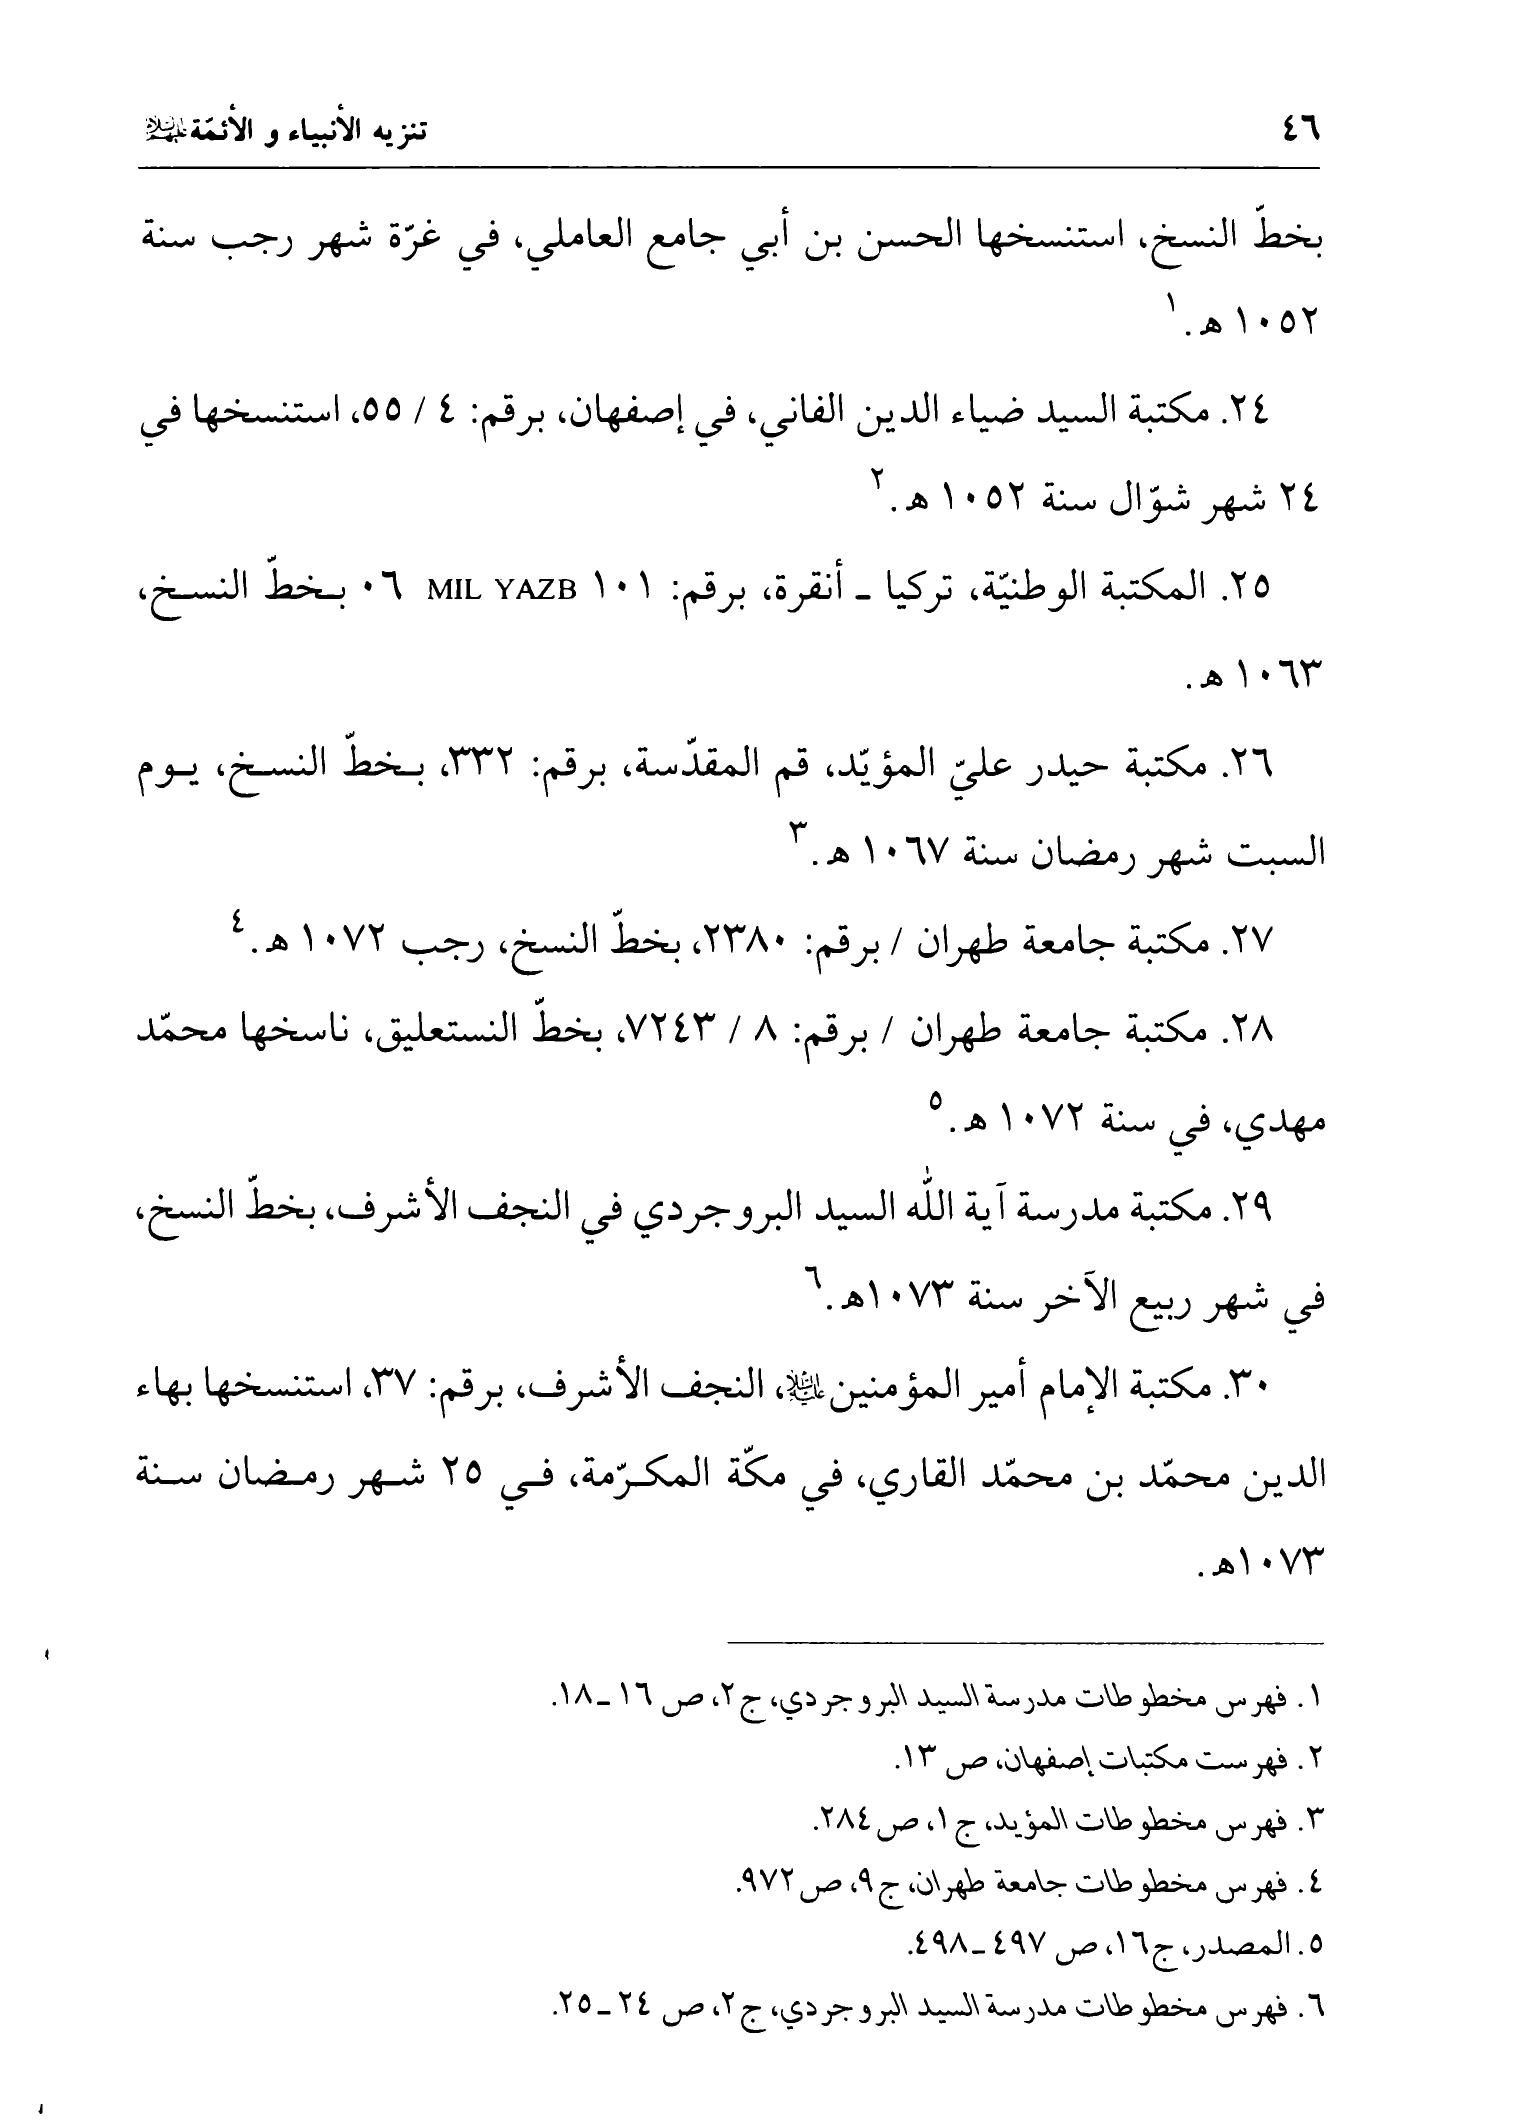 ٤٦
تنزيه الأنبياء و الأئمّة عليهم السلام
بخطّ النسخ، استنسخها الحسن بن أبي جامع العاملي، في غرّة شهر رجب سنة
١٠٥٢ هـ.١
٢٤. مكتبة السيد ضياء الدين الفاني، في إصفهان، برقم: ٤ / ٥٥، استنسخها في
٢٤ شهر شوّال سنة ١٠٥٢ هـ.٢
٢٥. المكتبة الوطنيّة، تركيا ـ أنقرة، برقم: ١٠١ MIL YAZB ٠٦ بخطّ النسخ،
١٠٦٣ هـ.
٢٦. مكتبة حيدر عليّ المؤيّد، قم المقدّسة، برقم: ٣٣٢، بخطّ النسخ، يوم
السبت شهر رمضان سنة ١٠٦٧ هـ.٣
٢٧. مكتبة جامعة طهران / برقم: ٢٣٨٠، بخطّ النسخ، رجب ١٠٧٢ هـ.٤
٢٨. مكتبة جامعة طهران / برقم: ٨ / ٧٢٤٣، بخطّ النستعليق، ناسخها محمّد
مهدي، في سنة ١٠٧٢ هـ.٥
٢٩. مكتبة مدرسة آية الله السيد البروجردي في النجف الأشرف، بخطّ النسخ،
في شهر ربيع الآخر سنة ١٠٧٣هـ.٦
٣٠. مكتبة الإمام أمير المؤمنين عليه السلام، النجف الأشرف، برقم: ٣٧، استنسخها بهاء
الدين محمّد بن محمّد القاري، في مكّة المكرّمة، في ٢٥ شهر رمضان سنة
١٠٧٣هـ.
١. فهرس مخطوطات مدرسة السيد البروجردي، ج٢، ص ١٦ ـ ١٨.
٢. فهرست مكتبات إصفهان، ص ١٣.
٣. فهرس مخطوطات المؤيد، ج ١، ص ٢٨٤.
٤. فهرس مخطوطات جامعة طهران، ج ٩، ص ٩٧٢.
٥. المصدر، ج١٦، ص ٤٩٧ ـ ٤٩٨.
٦. فهرس مخطوطات مدرسة السيد البروجردي، ج٢، ص ٢٤ ـ ٢٥.